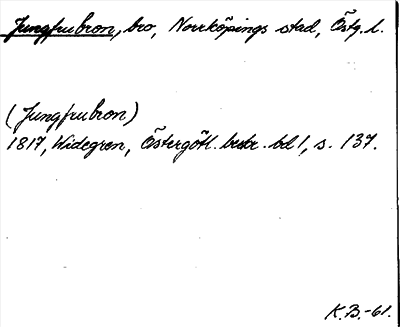 Jungfrubron, bro, Norrköpings stad, Östg. l.
(Jungfrubron)
1817, Widegren, Östergötl. beskr. bd 1, s. 137.
K.B.-61.